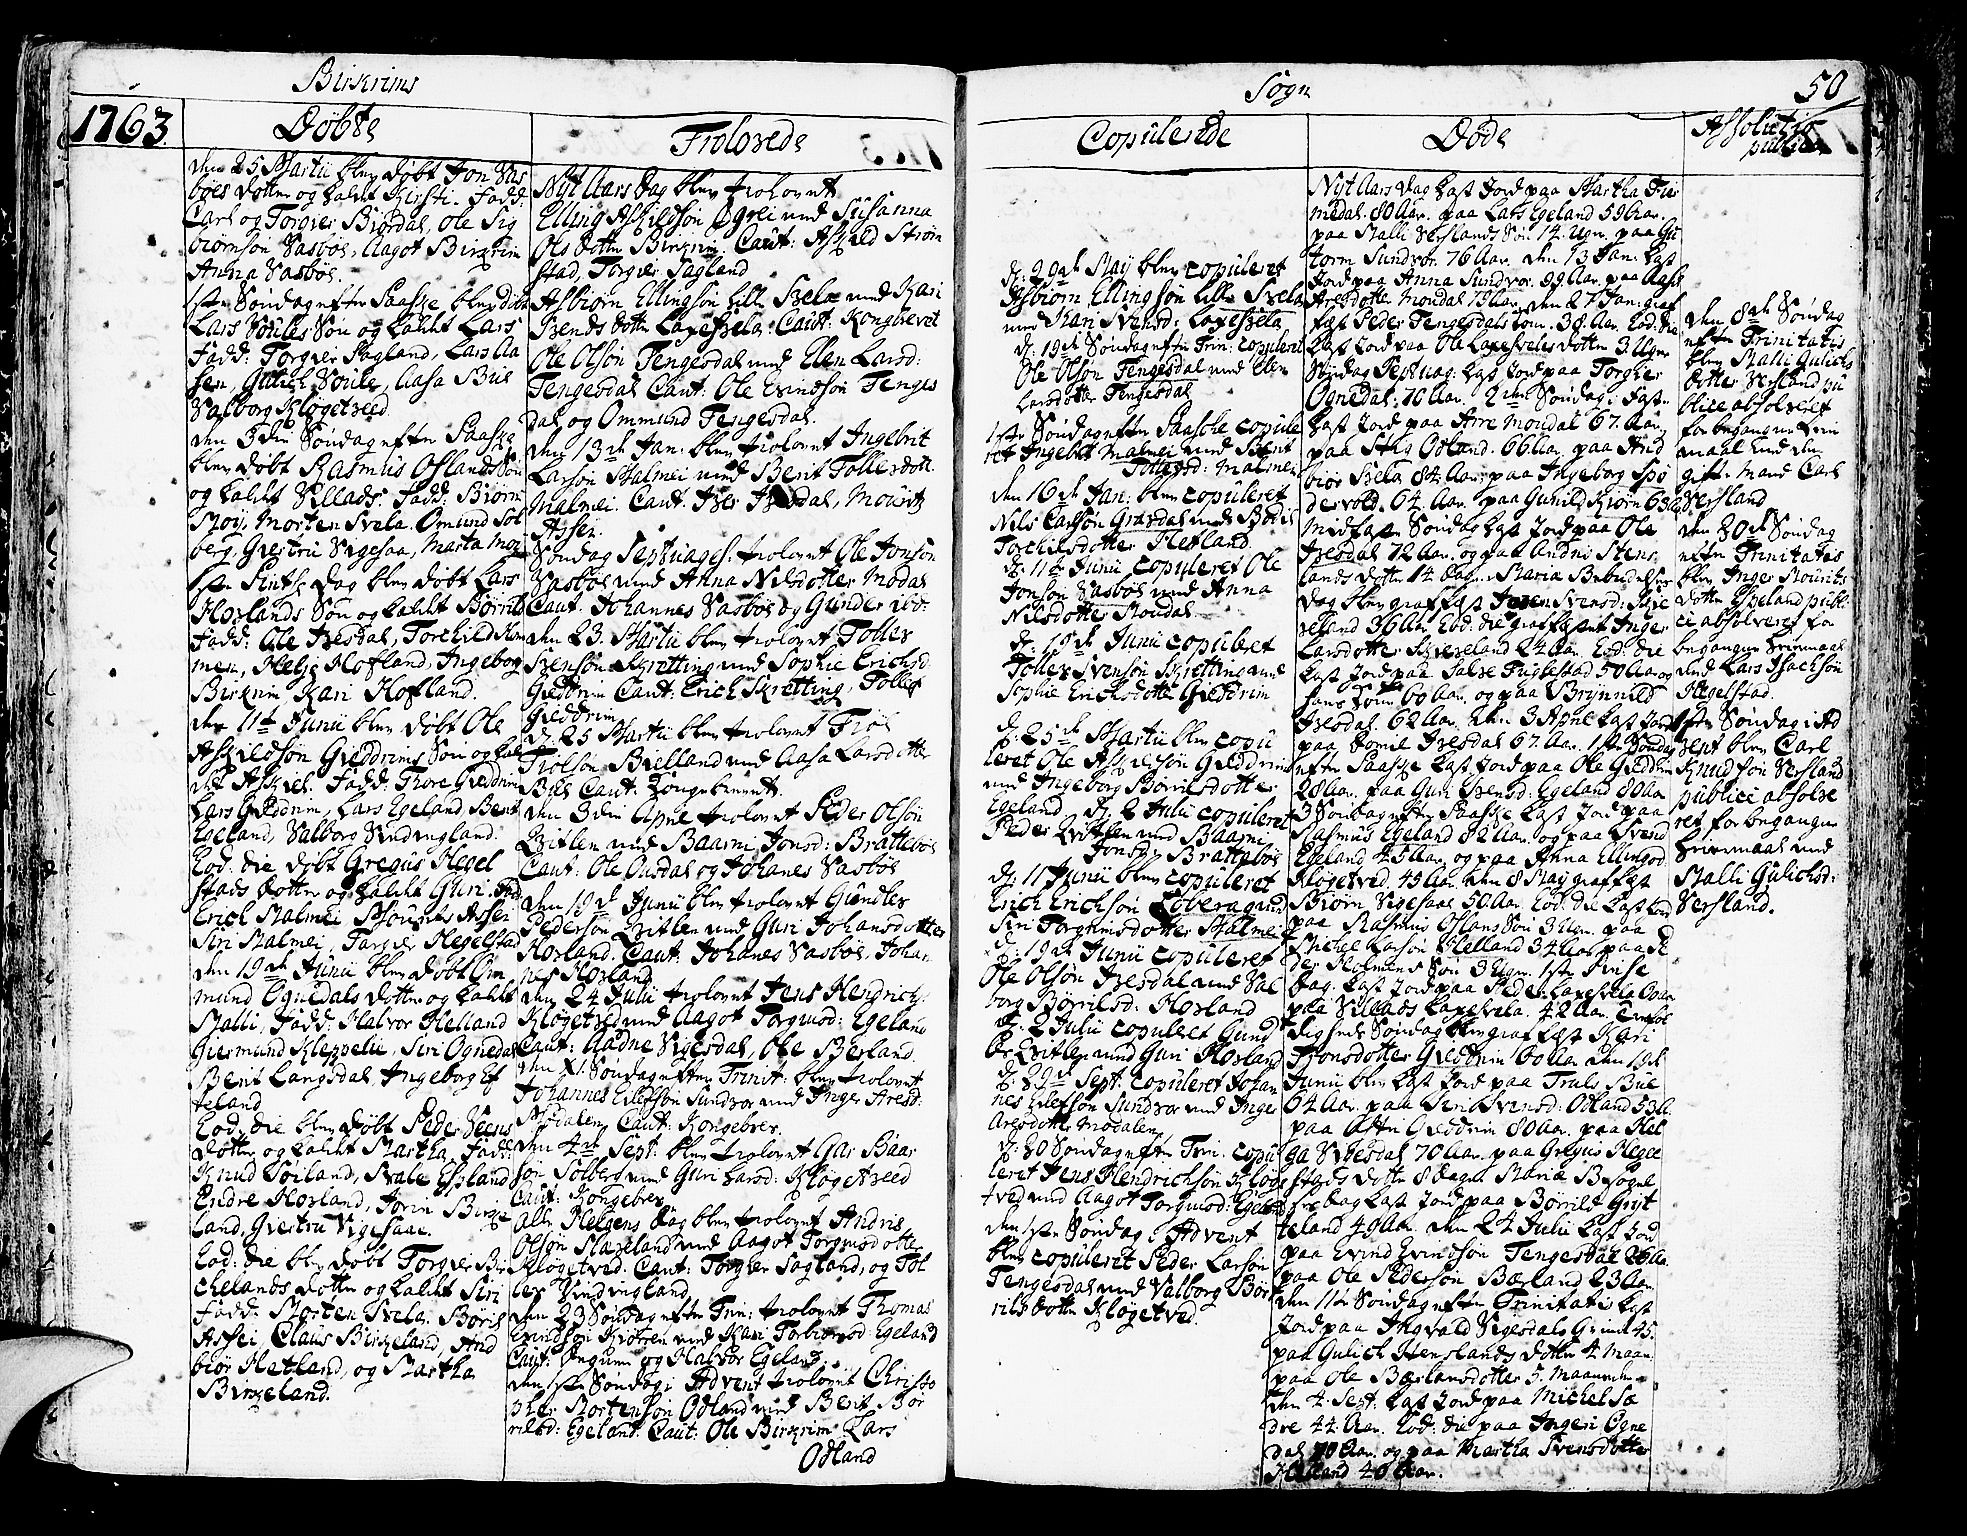 Birkrims
Sogn
50
1763.
Døbte
den 25 Martii blev døbt Jon Vas
böes dotter og kaldt Kirsti. Fadd:
Carl og Torgier Biordal, Ole Sig
biörnson Vasböe, Aagot Birkrim
Anna Vasböe.
1ste Søndag efter Paaske blev døbt
Lars Söüles Søn og kaldt Lars
Fadd: Torgier Sagland, Lars Aa
sen, Gulich Söüle, Aasa Büe
Valborg Kløgetveed.
den 3die Søndag efter Paaske
blev døbt Rasmüs Oslands Søn
og kaldt Villads. Fadd: Biørn
Møÿ, Morten Svela. Omund Sol
berg, Giertru Vigesaa, Marta Moi
1ste Pintse Dag blev døbt Lars
Horlands Søn og kaldt Børrild
Fadd: Ole Ivesdal, Torchild Hom
men, Helje Hofland, Ingeborg
Birkrim Kari Hofland.
den 11te Junii blev døbt Ole
Askieldsøn Gieddrims Søn og kal
det Askiel. Fadd: Thore Gieddrim
Lars Gieddrim, Lars Egeland, Berit
Egeland, Valborg Vindvigland.
Eod: die døbt Gregus Hegel
stads dotter og kaldt Guri. Fad
Erich Malmei Mourits Assei
Siri Malmei, Torgier Hegelstad
den 19de Junii blev døbt Om
mund Ognedals dotter og kaldt
Malli, Fadd: Halvor Helland
Giermund Kleppelie, Siri Ognedal
Berit Langsdal, Ingeborg Ef
teland
Eod: die blev døbt Peder Veens
dotter og kaldt Martha. Fadd:
Knud Sørland, Svale Espland
Endre Horland, Jorin Birke
land, Giertru Vigesaae.
Eod: die blev døbt Torgier Bir
chelands dotter og kaldt Siri
Fadd: Morten Svela, Børil
Assei Claus Birkeland, And
biør Hetland, og Martha
Birkeland.
Trolovede
Nyt Aars Dag blev trolovet
Elling Askieldsøn Øgrei med Susanna
Ols dotter Birkrim Caut: Askild Strøm
stad, Torgier Sagland
Asbiørn Ellingsøn lille Svela med Kari
Svends dotter Laxesvela. Caut: Kongbrevet
Ole Olsøn Tengesdal med Elen Larsd:
Tengesdal Caut: Ole Evindsøn Tenges
dal og Ommund Tengesdal.
den 13de Jan: blev trolovet Ingebrit
Larsøn Malmei med Berit Tollesdott.
Malmei. Caut. Iver Ivesdal, Mourits
Assei.
Søndag Septuages: trolovet Ole Jonsøn
Vasböe med Anna Nilsdotter Modal
Caut. Johannes Vasböe og Gunder ibd:
den 23. Martii blev trolovet Tolles
Svensøn Skretting med Sophie Erichsd:
Gieddrim Caut: Erich Skretting, Tolles
Gieddrim
d: 25 Martii blev trolovet Tröl
Trolsøn Bielland med Aasa Larsdotter
Büe Caut. Kongebrevet.
den 3die Aprile trolovet Peder Olsøn
Qvitlen med Baarni Jonsd: Bratteböe
Caut: Ole Ousdal og Johanes Vasböe
den 19de Junii blev trolovet Gündles
Pedersøn Qvitlen med Guri Johansdotter
Horland. Caut: Johanes Vasböe. Johan
nes Horland
den 24 Julii trolovet Jens Hendrichs:
Kløgetved med Aagot Torgiusd: Egeland
Caut: Aadne Vigesdal, Ole Berland.
den XI. Søndag efter Trinit: blev trolovet
Johannes Eilefsøn Sundvor med Inger Aresd:
Modalen, Caut: Kongebrev.
den 4de Sept. blev trolovet Gar Baar
søn Solberg med Guri Larsd: Kløgetveed
Caut: Kongebrev
Alle Helgens Dag blev trolovet Andris
Olsøn Stapeland med Aagot Torgiusdotter
Kløgetved. Caut: Torgier Sagland, og Tol
lev Vindvigland
den 23 Søndag efter Trin: trolovet Thomas
Evindsøn Kvörren med Kari Torbiorsd: Egeland
Caut: Ingumi og Halvor Egeland,
den 1ste Søndag i Advent trolovet Christo
pher Mortensøn Odland med Berit Bör
rilsd: Egeland. Caut: Ole Birkrim Lars
Odland
Copulerede
d: 29de May blev copuleret
Asbiørn Ellingsøn lille Svela
med Kari Svensd: Laxesvela
d: 19de Søndag efter Trin: copuleret
Ole Olsøn Tengesdal med Elen
Larsdotter Tengesdal
1ste Søndag efter Paasche copule
ret Ingebret Malmei med Berit
Tollevsd: Malmei
den 16de Jan: blev copuleret
Nils Carlsøn Gravdal med Bodil
Torchilsdotter Hetland
d: 11te Junii copuleret Ole
Jonsøn Vasböe med Anna
Nilsdotter Moudal.
d: 19de Junii copuleret
Tolles Svensøn Skretting med
Sophie Erichsdotter Gieddrim
d: 25de Martii blev copu
leret Ole Askielsøn Gieddrim
med Ingeborg Börrilsdotter
Egeland d: 2 Julii copuleret
Peder Qvitlen med Baarni
Jonsd: Bratteböe
d: 11 Junii blev copuleret
Erich Erichsøn med
Siri Torgrimsdotter Malmei
d: 19de Junii copuleret
Ole Olsøn Ivesdal med Val
borg Børrilsd: Horland
d: 2 Julii copuleret Gund
der Qvitlen med Guri Horland
d: 29de Sept. copuleret Johan
nes Eilefsøn Sundvor med Inger
Aresdotter Modalen
d: 20 Søndag efter Trin. copu
leret Jens Hendrichsön Kløge
tved med Aagot Torgiusd: Egeland
den 1ste Søndag i Advent
blev copuleret Peder Larsøn
Tengesdal med Valborg Bör
rils dotter Kløgetved.
Døde
Nyt Aars Dag kast Jord paa Martha Tier
medal. 80 Aar. paa Lars Egeland 59 Aar.
paa Malli Verslands Søn. 14. Uger. paa Gu
torm Sundvor. 76 Aar. den 13 Jan. kast
Jord paa Anna Sundvor. 99 Aar. paa Aase
Aresdotter Moudal 73 Aar. den 27 Jan: graf
fæst Peder Tengesdals Kone. 38 Aar. Eod: die
kast Jord paa Ole Laxesveles dotter 3 Uger
Søndag Septuag: kast Jord paa Torgier
Ognedal. 70 Aar. 2den Søndag i Faste
kast Jord paa Arre Moudal 67. Aar.
paa Stig Odland. 66 Aar. paa And
biör Svela 84 Aar. paa Ingeborg Spo
dervold. 64. Aar. paa Gunild Kiørn 63 Aar
Midfaste Søndag kast Jord paa Ole
Ivesdal 72 Aar. og paa Andrei Stens
lands dotter 14 Dage. Maria Bebudelses
dag blev graffæst Iver Svensd: Skie
veland 36 Aar. Eod: die graffæst Inger
Larsdotter Skieveland 24 Aar. Eod: die
kast Jord paa Salve Fuglestad 50 Aar og
hans Kone 60 Aar. og paa Brynnild
Ivesdal. 62 Aar. den 3 Aprile kast Jord
paa Bomil Ivesdal 67. Aar. 1ste Søndag
efter Paaske kast Jord paa Ole Gieddrim
28 Aar. paa Guri Svensd: Egeland 80 Aar
3 Søndag efter Paaske kast Jord paa
Rasmus Egeland 82 Aar. og paa Svend
Egeland 45 Aar. og paa Anna Ellingsd
Kløgetved. 45 Aar. den 8 May graffæst
Biørn Vigesaae 50 Aar. Eod: die kast Jord
paa Rasmus Oslans Søn 3 Uger. paa
Michel Larsøn Helland 34 Aar. paa Pe
der Holmens Søn 3 Uger. 1ste Pinse
Dag. kast Jord paa Peder Laxesvela
paa Villads Laxesvela. 42 Aar.
dighds Søndag blev graffæst Kari
Jonsdotter Gieddrim 60 Aar. den 19de
Junii blev kast Jord paa Truls Büe
64 Aar. paa Siri Svensd: Odland 53 A.
paa Otte Gieddrim 80 Aar. paa Hel
ga Vigesdal 70 Aar. paa Gregus Hegel
stads dotter 8 dage. Maria Besøgel
se Dag kast Jord paa Børrild Gryt
teland 49 Aar. den 24 Julii kast Jord
paa Evind Evindsøn Tengesdal 26 Aa.
paa Ole Pedersøn Bærland 23 Aar.
den 11te Søndag efter Trinitatis kast
Jord paa Ingvald Vigesdals Qvinde 45.
paa Gulich Henslands dotter 4 Maan
paa Ole Bærlansdotter 5. Maaneder
den 4. Sept: kast Jord paa Michel Sæ
dre 44. Aar. Eod: die paa Ingeri Ogne
dal 70 Aar. og paa Martha Svensdotter
Helland 40 Aar.
Absolutio
publica
den 8de Søndag
efter Trinitatis
blev Malli Gulichs
dotter Versland pu
blice absolveret
for begangne Leier
maal med den
gift Mand Carl
Versland
den 20de Søndag
efter Trinitatis
blev Inger Mourits
dotter Espeland publi
ce absolveret for
begangne Leiermaal
med Lars Isachsøn
Hegelstad.
1ste Søndag i Ad
vent blev Carl
Knudsøn Versland
publice absolve
ret for begangne
Leiermaal med
Malli Gulichsd:
Versland.